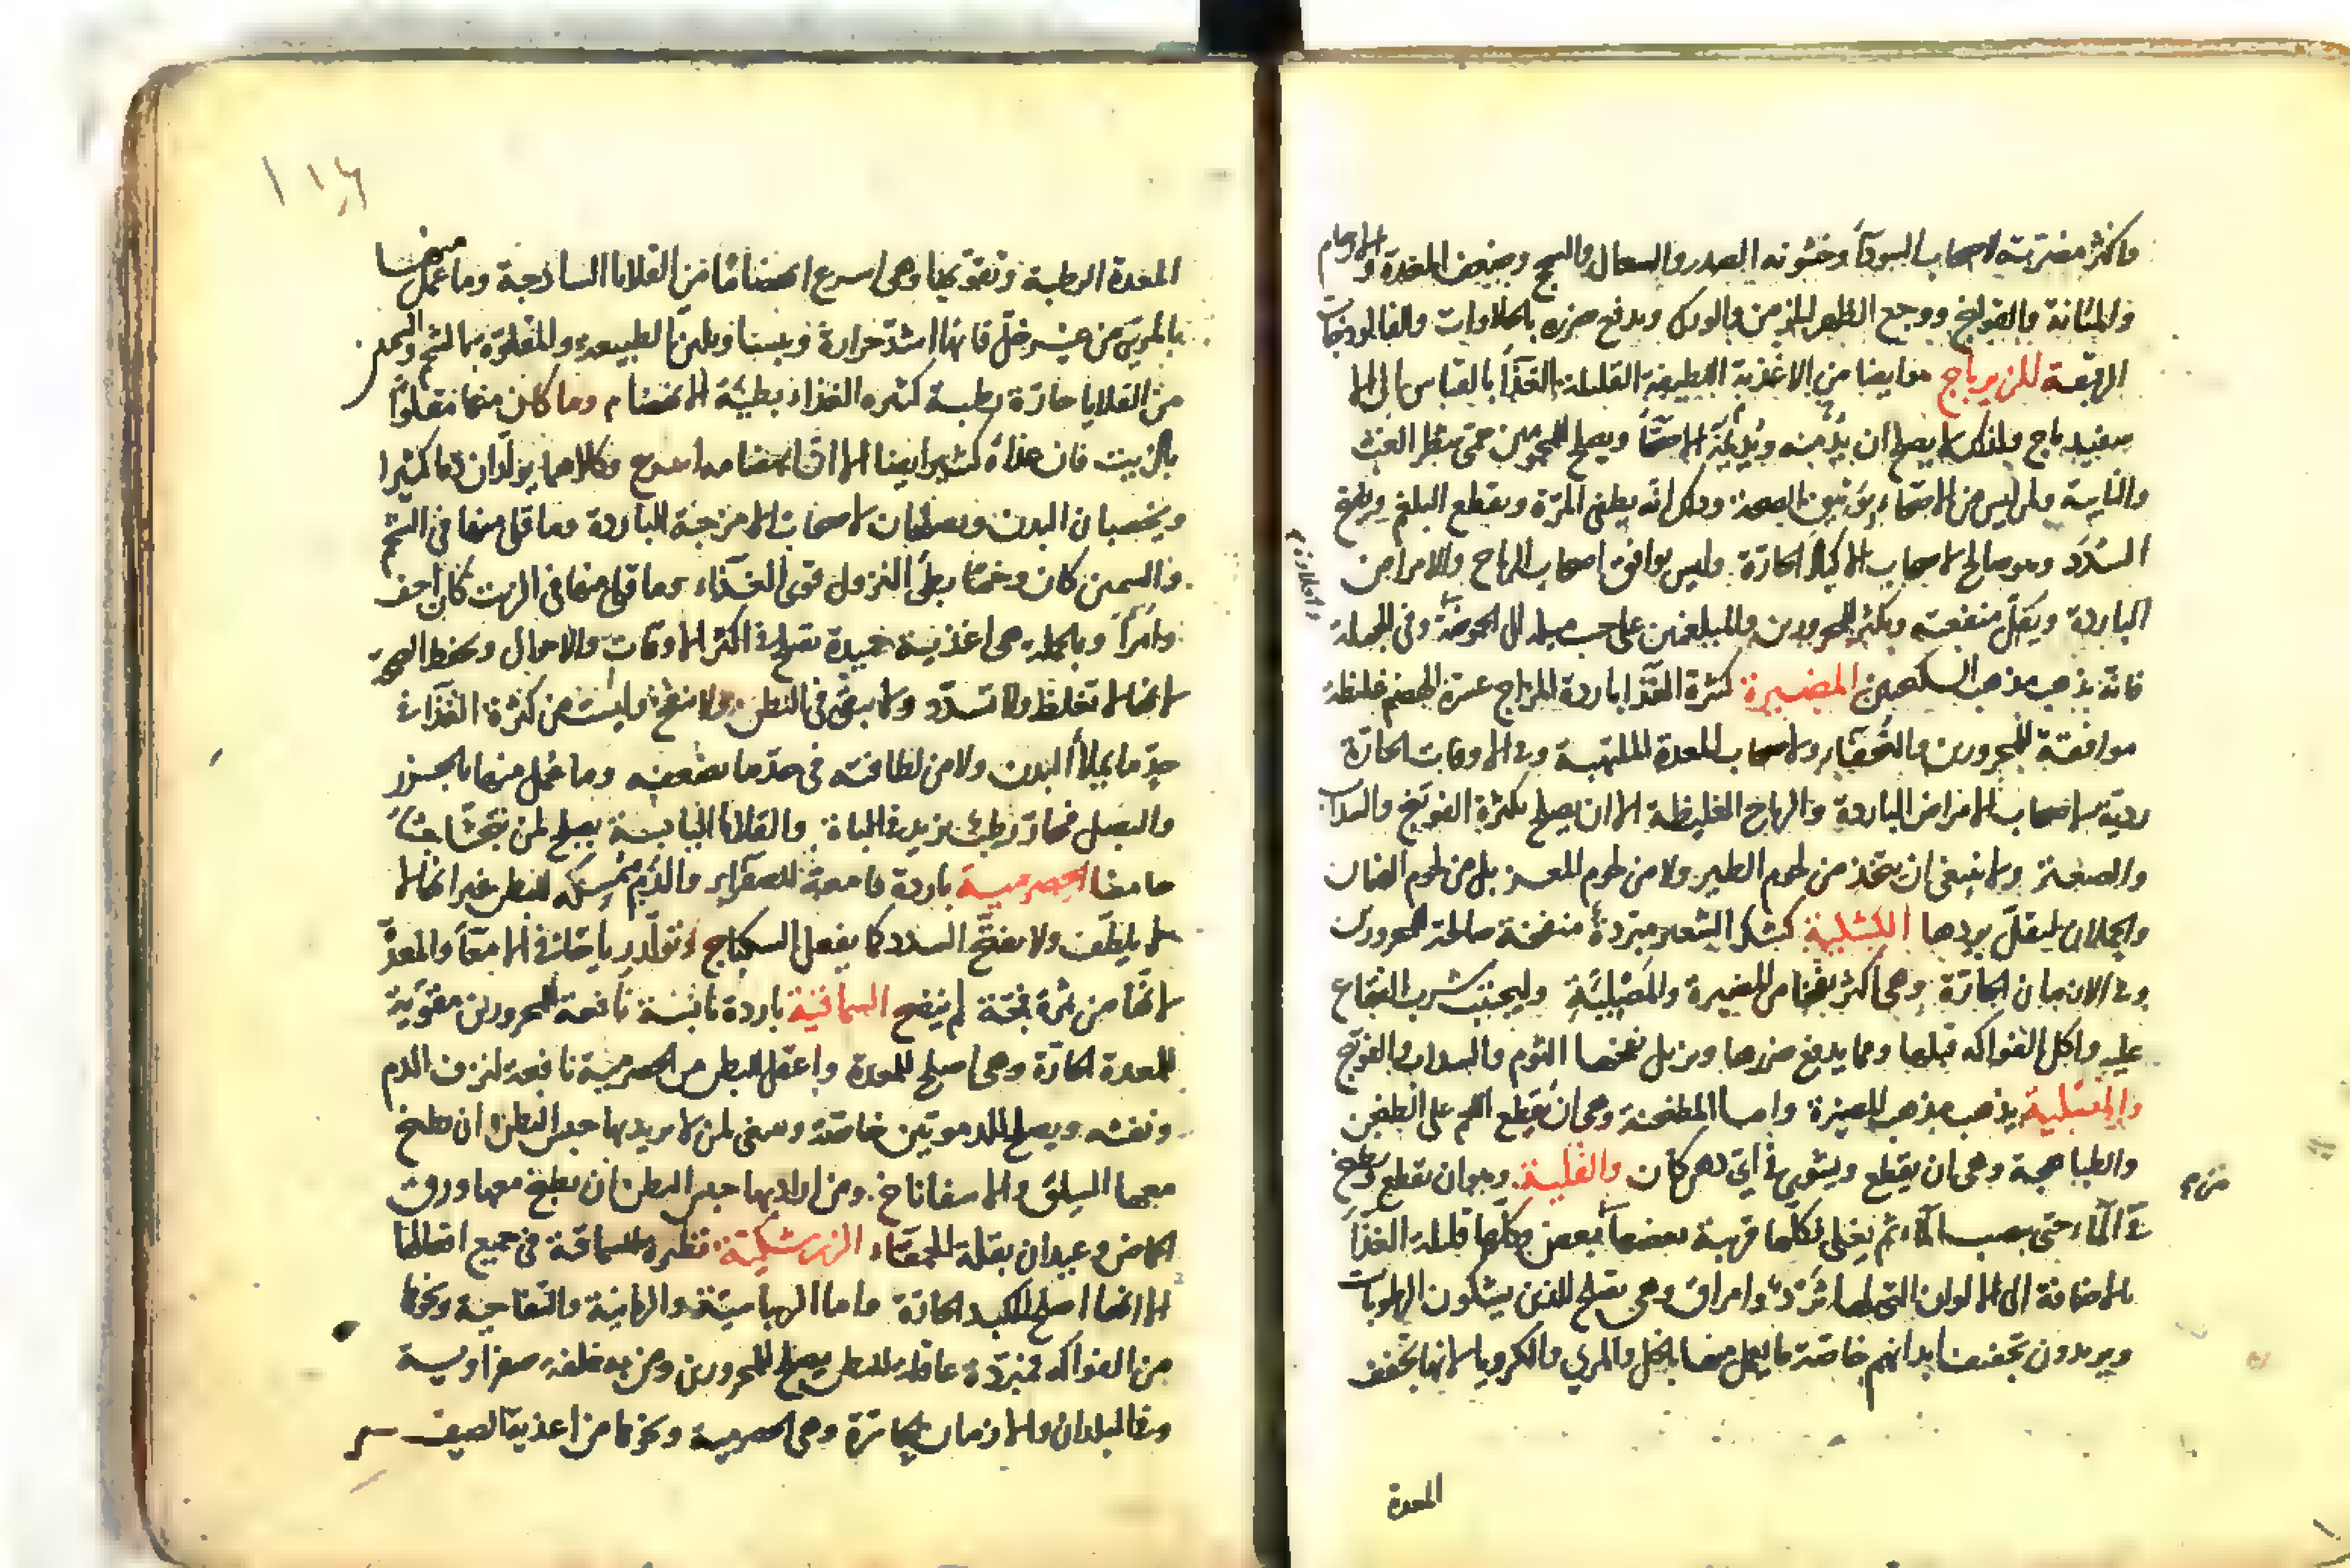 واكثر مضرته لاصحاب السوداء وخشونة الصدر والسعال والسحج وضعف المعدة والارحام
والمثانة والقولنج ووجع الظهر المزمن والورك ويدفع ضرره بالحلاوات والفالوذجات
المرتفعة للزيرباج هو ايضا من الاغذية اللطيفة القليلة الغذاء بالقياس الى الا
سفيدباج ولذلك لا يصلح ان يدمنه ويديمه الاصحاء ويصلح للمحمومين حتى
السدد وهو صالح لاصحاب الاكباد الحارة وليس يوافق اصحاب الرياح والامراض
الباردة ويقل منفعته ويكثر للمحرورين والبلغمين على حسب ميله الى الحموضة وفى الجملة
فانه يذهب مذهب السكنجبين المضيرة كثيرة الغذا باردة المزاج عسرة الهضم غليظة
موافقة للمحرورين والشباب ولاصحاب المعدة الملتهبة وفى الاوقات الحارة
ردية لاصحاب الامراض الباردة والرياح الغليظة الا ان يصلح بكثرة الفوتنج والسداب
والصعتر ولا ينبغى ان يتخذ من لحوم الطير ولا من لحوم المعز بل من لحوم الضان
والحملان ليقل بردها الكشكية كشك الشعير مبردة منفخة صالحة للمحرورين
وفى الازمان الحارة وهى اكثر نفخا من المضيرة والمصلية وليجتنب شرب الفقاع
عليه واكل الفواكه قبلها ومما يدفع ضررها ويزيل نفخها الثوم والسداب والفوتنج
والمصلية يذهب مذهب المضيرة واما المطجنة وهى ان يقطع اللحم على الطجن
والطباهجة وهى ان يقطع ويشوى فى اى دهن كان والقلية وهو ان يقطع ويطبخ
فى الماء حتى يصب الماء ثم يغلى فكلها قريبة بعضها من بعض وكلها قليلة الغذا
بالاضافة الى الالوان التى لها ثرد وامراق وهى تصلح للذين يشكون الرطوبات
ويريدون تجفيف ابدانهم خاصة ما يعمل منها بالخل والمرى والكرويا لانها تجفف
المعدة
المعدة الرطبة وتقويها وهى اسرع انهضاما من القلايا الساذجة وما عمل منها
بالمرى من غير خل فانها اشد حرارة ويبسا ويلين الطبيعة والمقلوة بالشحم واللحم
من القلايا حارة رطبة كثيره الغذاء بطيئة الانهضام وما كان منها مقلوا
بالزيت فان غذاه كثير ايضا الا ان انهضامه اسرع وكلاهما يولدان دما كثيرا
ويخصبان البدن ويصلحان لاصحاب الامزجة الباردة وما قلى منها فى الشحم
والسمن كان وخما بطئ النزول قوى الغذاء وما قلى منها فى الزيت كان اخف
وامرأ وبالجملة هى اغذية جيدة تصلح فى اكثر الاوقات والاحوال وتحفظ الصحة
لانها لا تغلظ ولا تسدد ولا تبقى فى البطن ولا تنفخ وليست من كثرة الغذاء
بحد ما يملأ البدن ولا من لطافته فى حد ما يضعفه وما عمل منها بالجزر
والبصل فحار رطب يزيد فى الباه والقلايا اليابسة يصلح لمن يتجشأ جشاء
حامضا الحصرمية باردة قامعة للصفراء والدم ممسكة للبطن غير انها لا
لا يلطف ولا يفتح السدد كما يفعل السكباج وتولد رياحا فى الامعاء والمعدة
لانها من ثمرة فجة لم ينضج السماقية باردة يابسة نافعة للمحرورين مقوية
للمعدة الحارة وهى اصلح للمعدة واعقل للبطن من الحصرمية نافعة لنزف الدم
ونفثه ويصلح للدمويين خاصة وينبغى لمن لا يريد بها حبس البطن ان يطبخ
معها السلق والاسفاناخ ومن اراد بها حبس البطن ان يطبخ معها ورق
الحماض وعيدان بقلة الحمقاء الزرشكية نظيرة السماقية فى جميع افعالها
الا انها اصلح للكبد الحارة واما الريباسية والرمانية والتفاحية ونحوها
من الفواكه فمبردة عاقلة للبطن يصلح للمحرورين ومن به خلفة صفراوية
وفى البلدان والازمان الحارة وهى الحصرمية ونحوها من اغذية الصيف